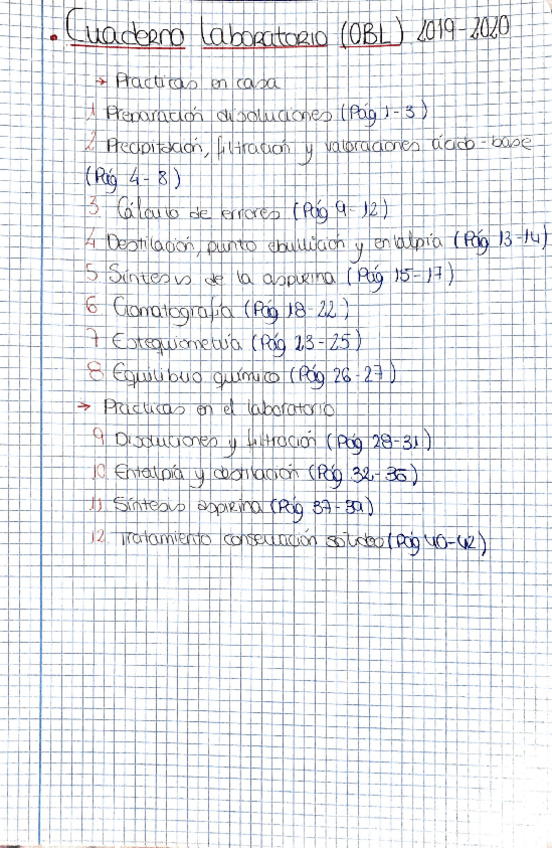 . Cuaderno laboratorio (OBL) 2019-2020
→ Practicas en casa
1 Preparación disoluciones (Pág 1-3)
2 Precipitación, filtración y valoraciones ácido-base
(Pág 4-8)
3 Cálculo de errores (Pág 9-12)
4 Destilación, punto ebullición y entalpía (Pág 13-14)
5 Síntesis de la aspirina (Pág 15-17)
6 Cromatografía (Pág 18-22)
7 Estequiometría (Pág 23-25)
8 Equilibrio químico (Pág 26-27)
→ Practicas en el laboratorio
9 Disoluciones y filtración (Pág 28-31)
10 Entalpía y destilación (Pág 32-36)
11 Síntesis aspirina (Pág 37-39)
12 Tratamiento consecución solidos (Pág 40-42)